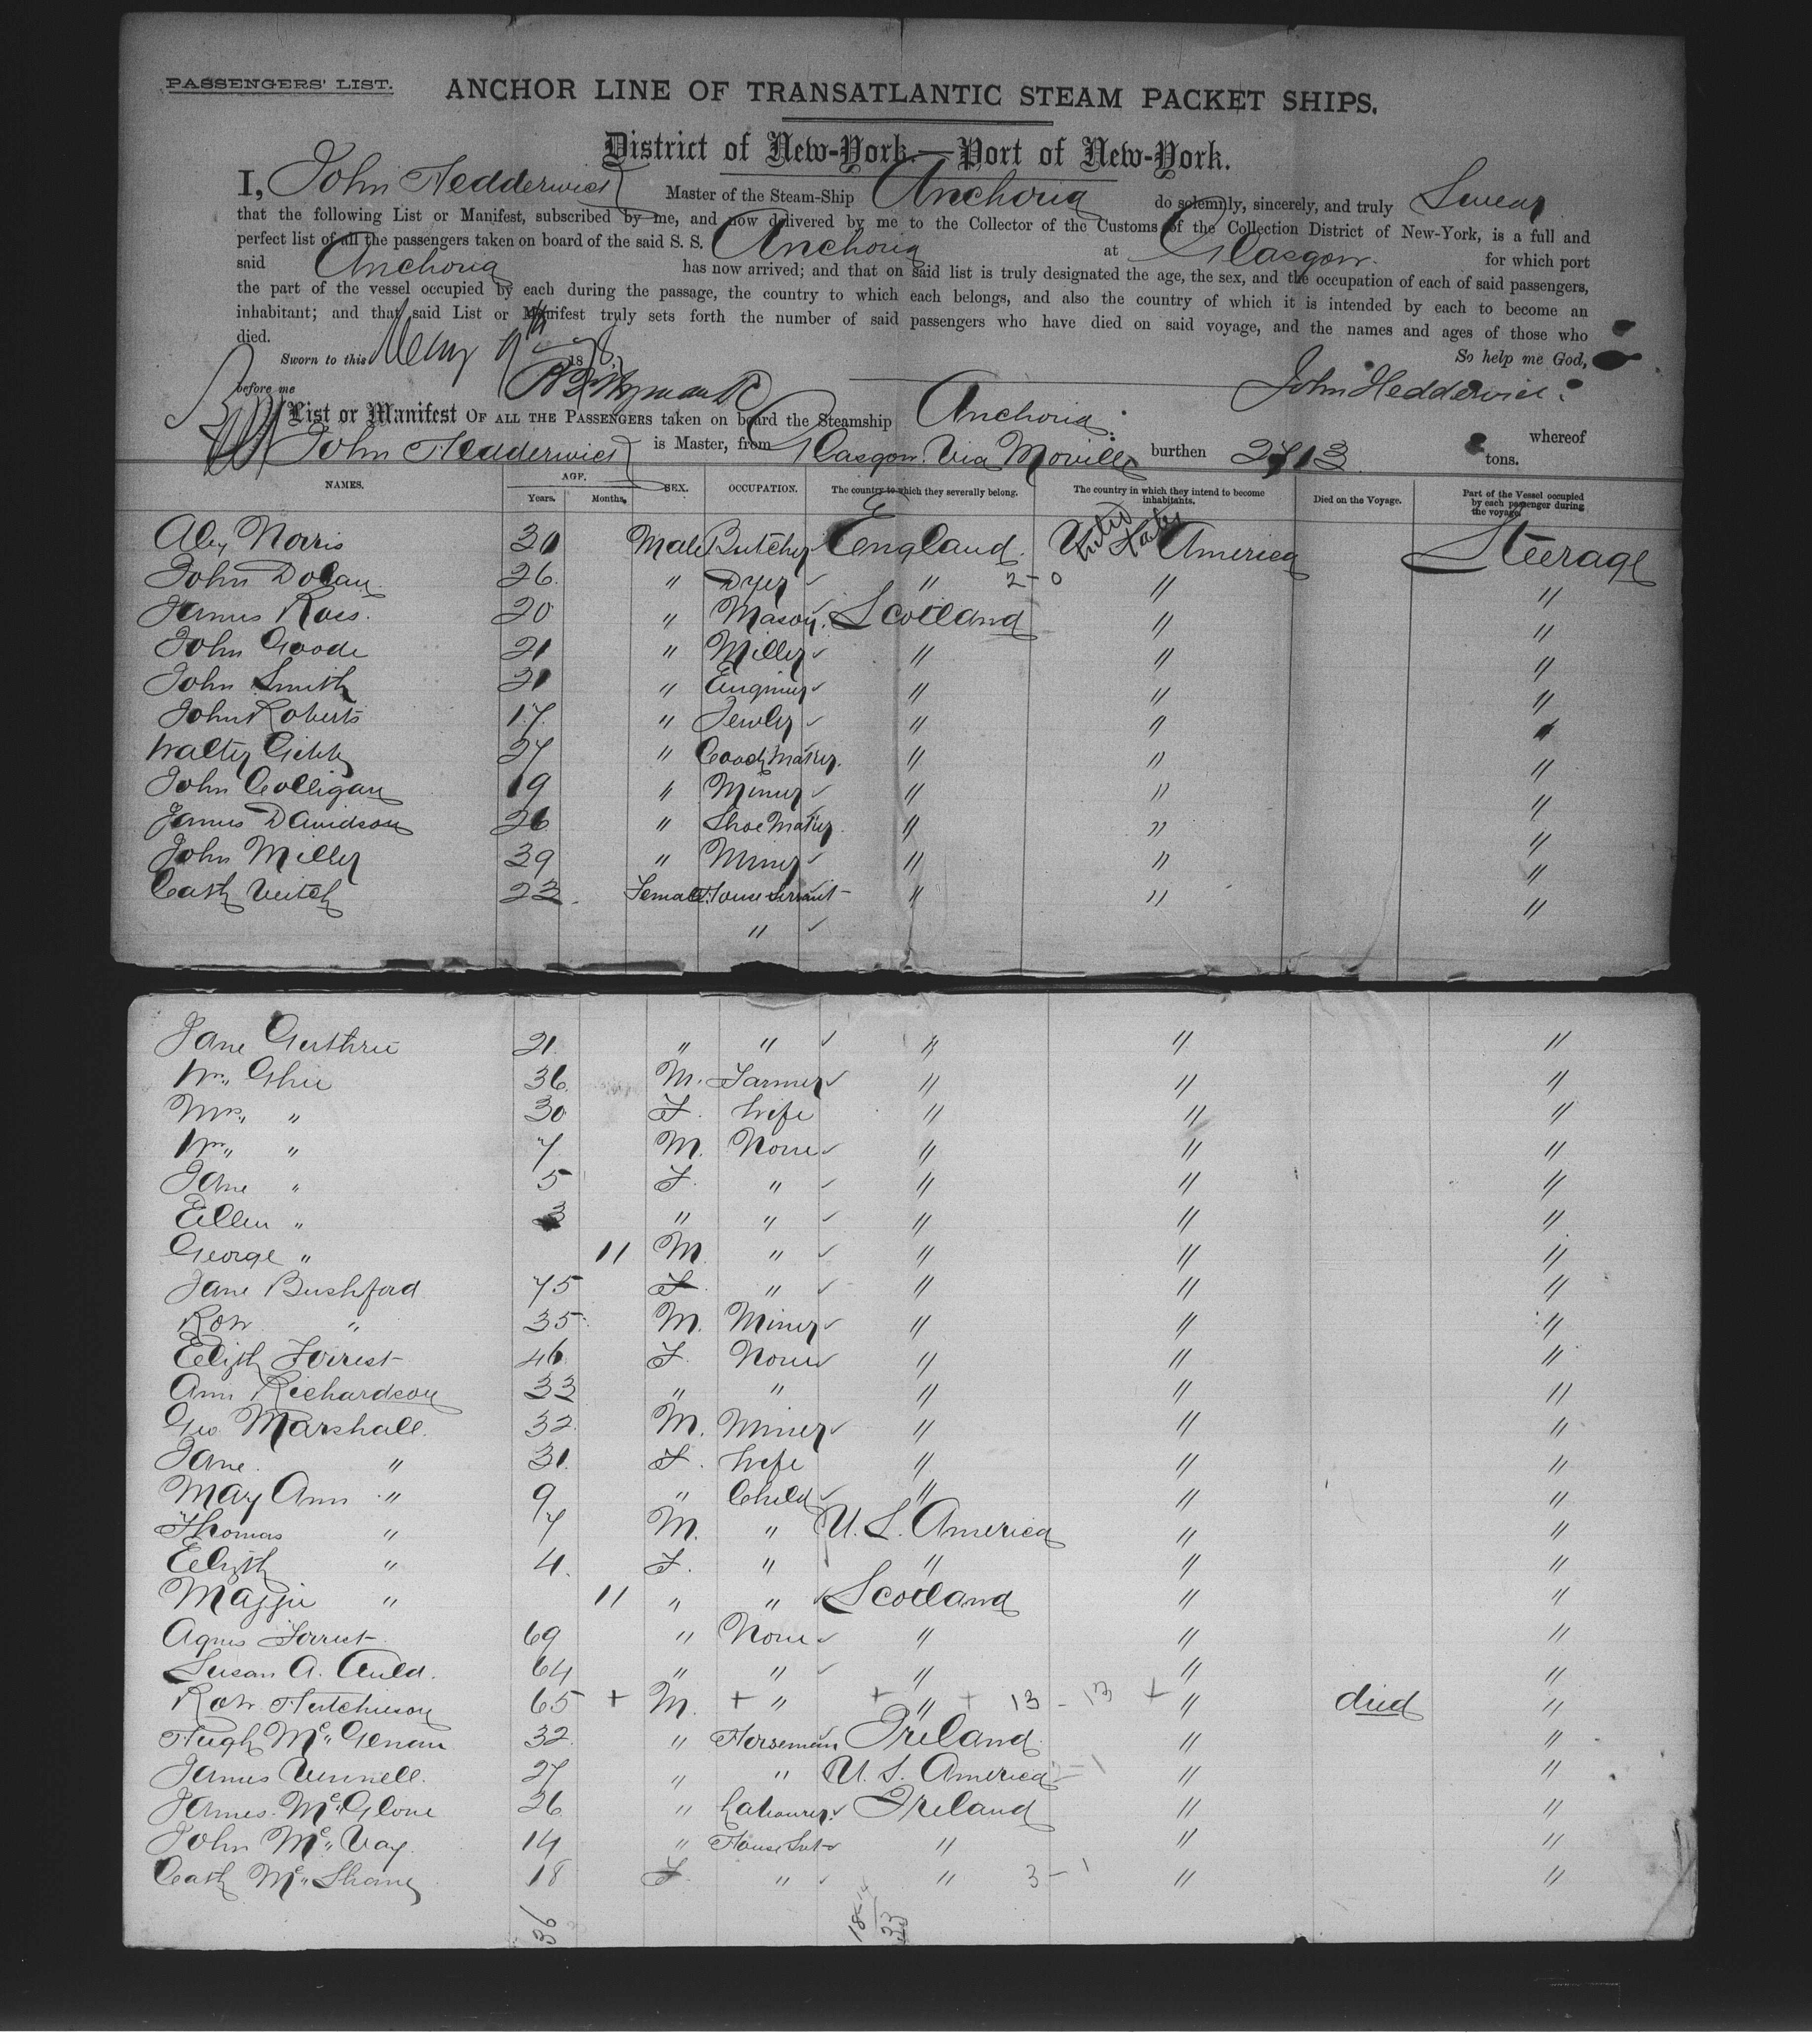 PASSENGERS' LIST.
ANCHOR LINE OF TRANSATLANTIC STEAM PACKET SHIPS.
District of New-York.—Port of New-York.
I, John Hedderwick Master of the Steam-Ship Anchoria do solemnly, sincerely, and truly Swear
that the following List or Manifest, subscribed by me, and now delivered by me to the Collector of the Customs of the Collection District of New-York, is a full and
perfect list of all the passengers taken on board of the said S. S. Anchoria at Glasgow. for which port
said Anchoria has now arrived; and that on said list is truly designated the age, the sex, and the occupation of each of said passengers,
the part of the vessel occupied by each during the passage, the country to which each belongs, and also the country of which it is intended by each to become an
inhabitant; and that said List or Manifest truly sets forth the number of said passengers who have died on said voyage, and the names and ages of those who
died.
So help me God,
Sworn to this 9th 187
before me
John Hedderwick
List or Manifest OF ALL THE PASSENGERS taken on board the Steamship Anchoria whereof
John Hedderwick is Master, from Glasgow Via Moville burthen 2713 tons.
NAMES. AGE. Years. Months. SEX. OCCUPATION. The country to which they severally belong. The country in which they intend to become inhabitants. Died on the Voyage. Part of the Vessel occupied by each passenger during the voyage.
Alex Norris 30 Male Butcher England. U. States America Steerage
John Dolan 26. " Dyer " 2-0 " "
James Ross. 20 " Mason. Scotland " "
John Goode 21 " Miller " " "
John Smith 21 " Engineer " " "
John Roberts 17. " Jewler " " "
Walter Gibb 27 " Coach Maker. " " "
John Colligan 19 " Miner " " "
James Davidson 26 " Shoe Maker. " " "
John Miller 39 " Miner " " "
Cath Veitch 23. Female House Servant " " "
"
Jane Guthrie 21. " " " " "
Wm. Ghie 36. M. Farmer " " "
Mrs. " 30 F. Wife " " "
Wm. " 7 M. None " " "
Jane " 5 F. " " " "
Ellen " 3 " " " " "
George " 11 M. " " " "
Jane Bushford 75 F. " " " "
Robt " 35. M. Miner " " "
Elizth Forrest 46. F. None " " "
Ann Richardson 33 " " " " "
Geo. Marshall. 32. M. Miner " " "
Jane. " 31. F. Wife " " "
May Ann " 9 " Child " " "
Thomas " 7 M. " U. S. America " "
Elizth " 4. F. " " " "
Maggie " 11 " " Scotland " "
Agnes Forrest 69 " None " " "
Susan A. Auld. 64 " " " " "
Robt Hutchison 65 + M. + " + " + 13 - 13 + " died "
Hugh Mc Genan 32. " Horseman Ireland. " "
James Vennell. 27 " " U. S. America - 1 " "
James Mc Glone 26 " Labourer. Ireland " "
John Mc Vay. 14 " House Svt " " "
Cath Mc Shane 18 F. " " 3-1 " "
36
18-14
33